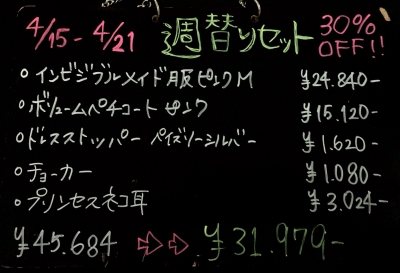 4/15 - 4/21 週替りセット 30% OFF!!
○インビジブルメイド服ピンクM ¥24.840-
○ボリュームペチコート ピンク ¥15.120-
○ドレスストッパー ペイズリーシルバー ¥1.620-
○チョーカー ¥1.080-
○プリンセスネコ耳 ¥3.024-
¥45.684 ⇨⇨ ¥31.979-